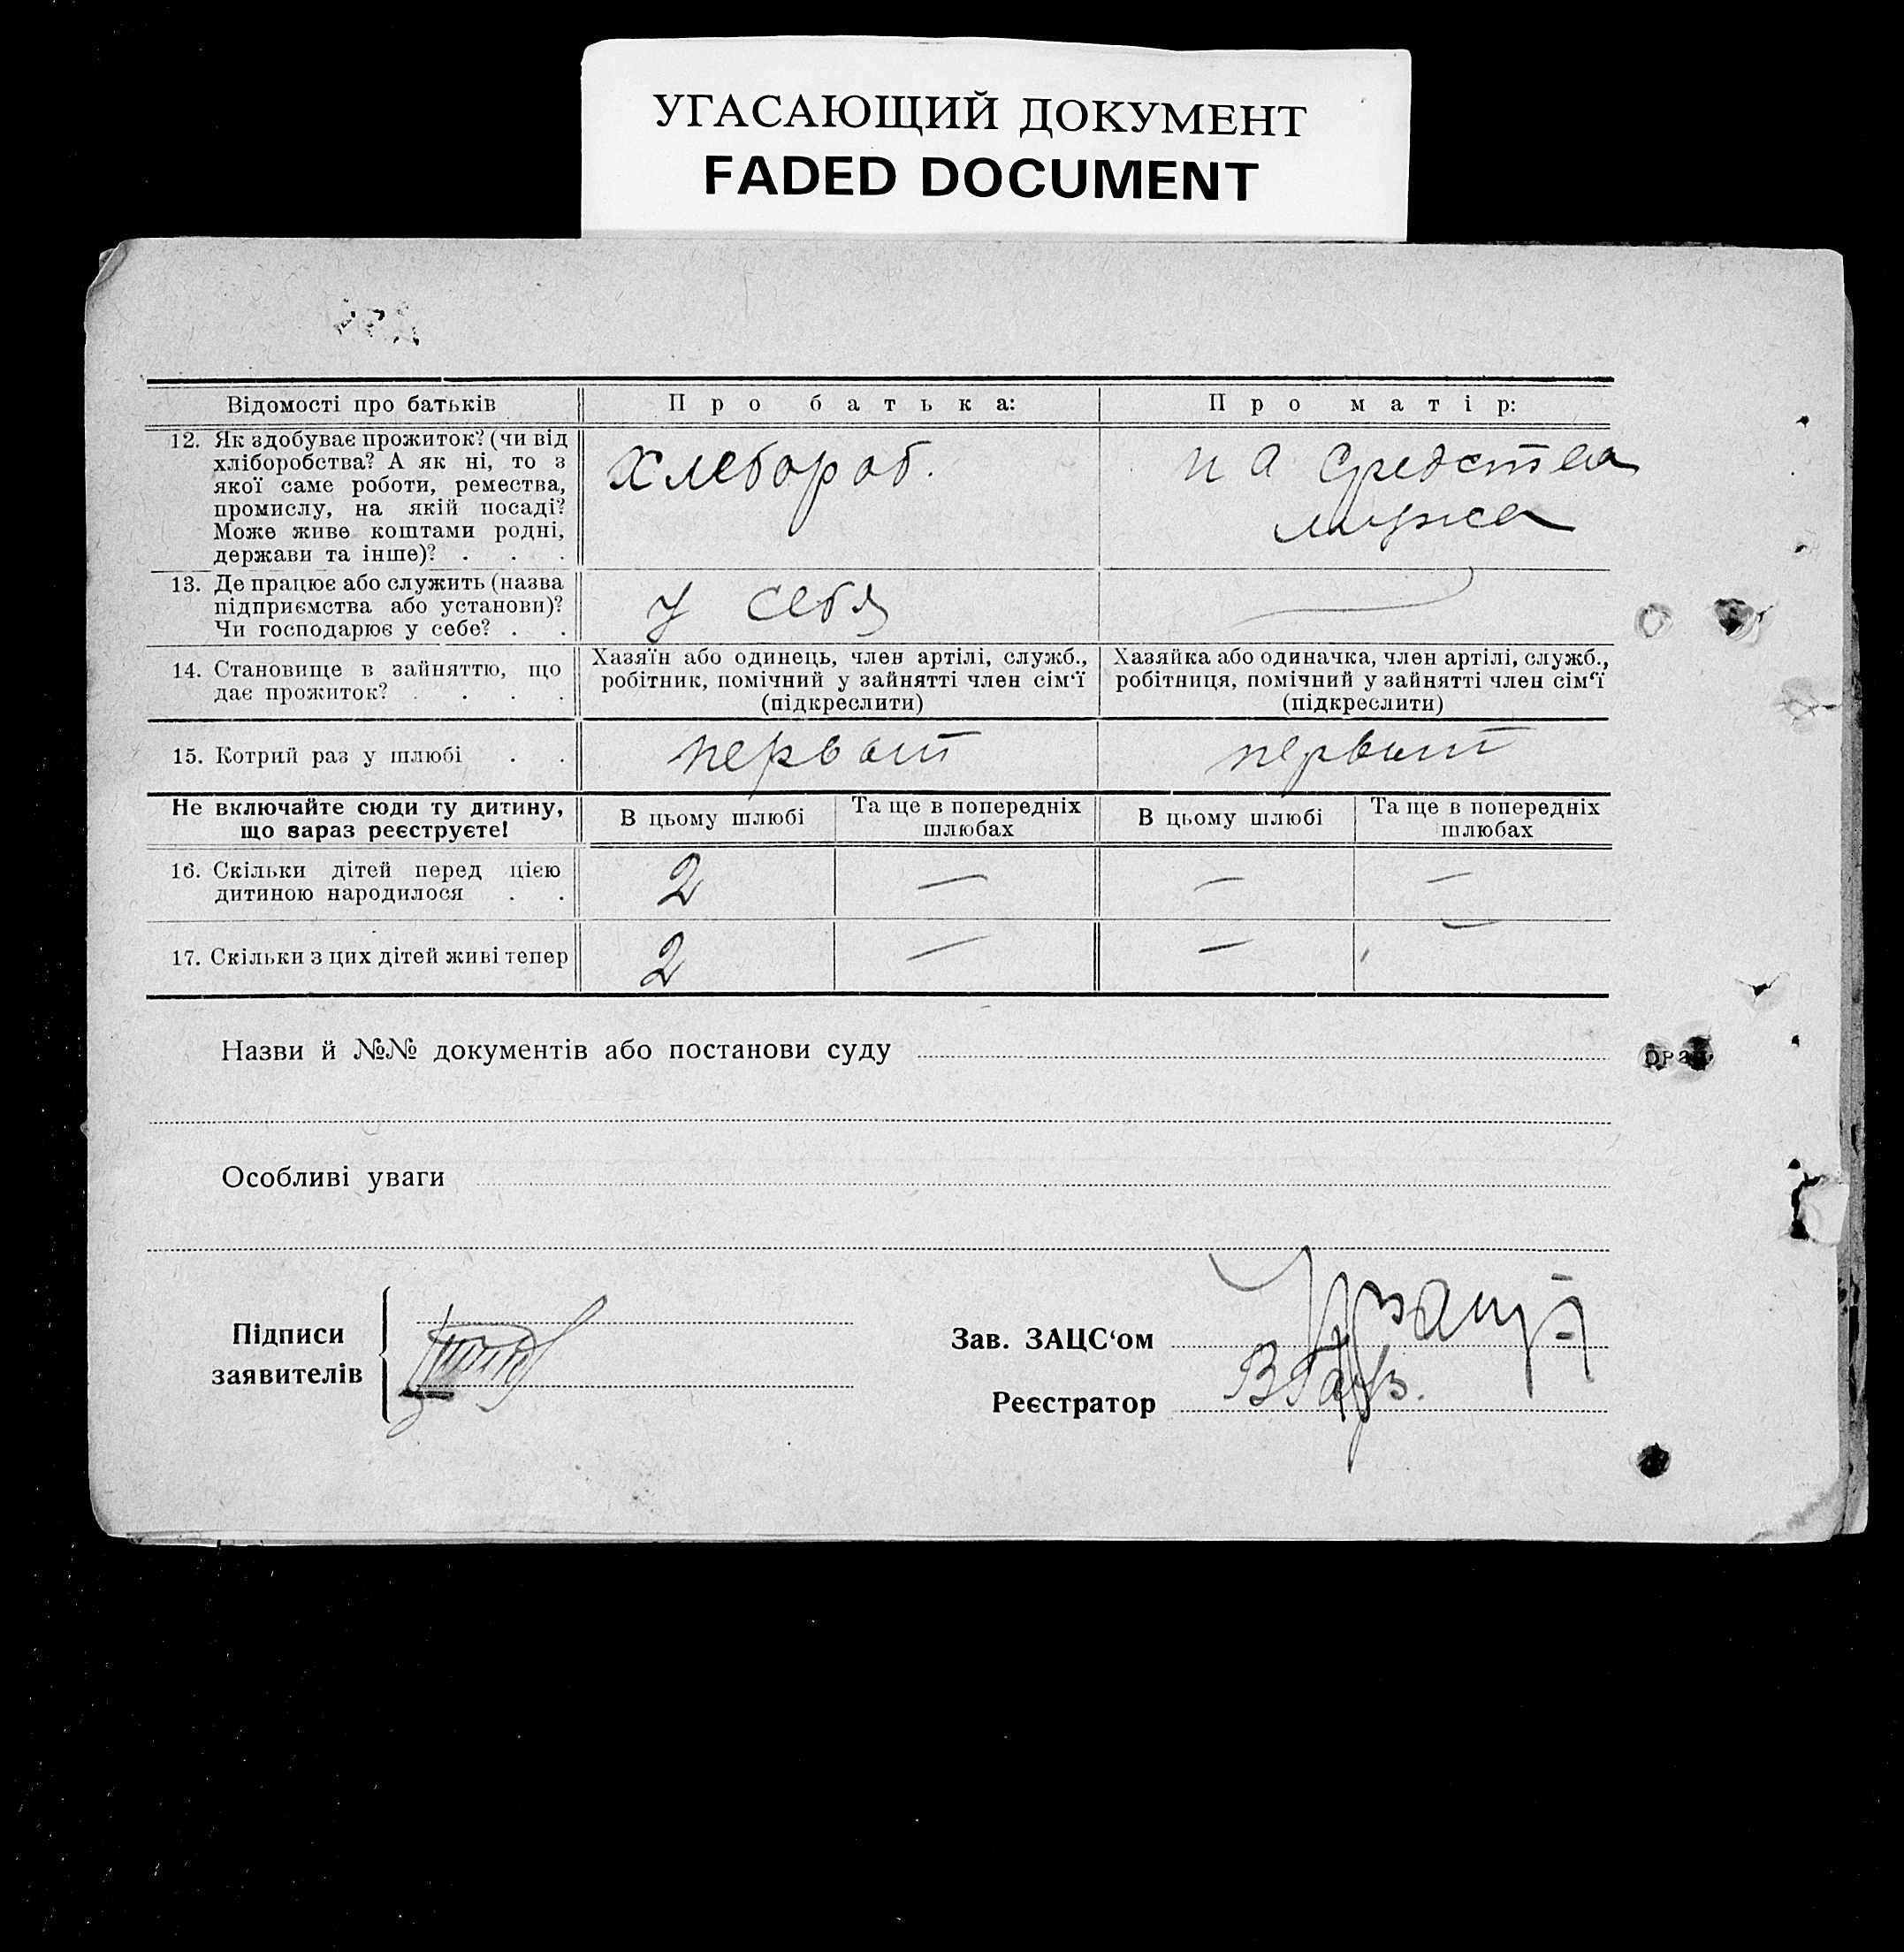 УГАСАЮЩИЙ ДОКУМЕНТ
FADED DOCUMENT
Відомості про батьків
Про батька:
Про матір:
12. Як здобуває прожиток? (чи від
хліборобства? А як ні, то з
якої саме роботи, ремества,
промислу, на якій посаді?
Може живе коштами родні,
держави та інше)? . . .
Хлебороб.
на средства
мужа
13. Де працює або служить (назва
підприємства або установи)?
Чи господарює у себе? . .
у себя
—
14. Становище в зайняттю, що
дає прожиток? . . . .
Хазяїн або одинець, член артілі, служб.,
робітник, помічний у зайнятті член сім‘ї
(підкреслити)
Хазяйка або одиначка, член артілі, служб.,
робітниця, помічний у зайнятті член сім‘ї
(підкреслити)
15. Котрий раз у шлюбі . .
первый
первый
Не включайте сюди ту дитину,
що зараз реєструєте!
В цьому шлюбі
Та ще в попередніх
шлюбах
В цьому шлюбі
Та ще в попередніх
шлюбах
16. Скільки дітей перед цією
дитиною народилося . .
2 — — —
17. Скільки з цих дітей живі тепер
2 — —
Назви й №№ документів або постанови суду
Особливі уваги
Підписи
заявителів
Зав. ЗАЦС‘ом
Реєстратор